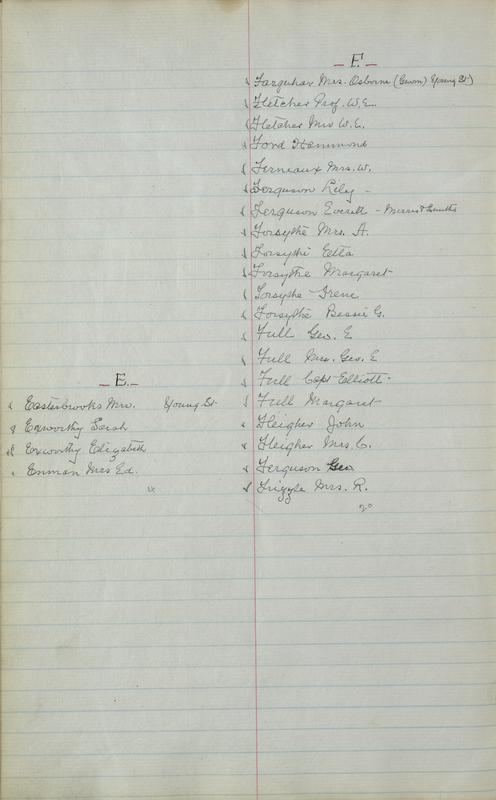 E.
Easterbrooks Mrs. Young St.
Exworthy Sarah
Exworthy Elizabeth
Enman Mrs Ed.
F.
Farquhar Mrs. Osborne Young St)
Fletcher Prof. W.E.
Fletcher Mrs W.E.
Ford Hammond
Ferneaux Mrs. W.
Ferguson Riley -
Ferguson Everett -
Forsythe Mrs. A.
Forsythe Etta
Forsythe Margaret
Forsythe - Irene
Forsythe Bessie G.
Full Geo. E
Full Mrs. Geo. E
Full Capt Elliott -
Full Margaret
Fleigher John
Fleigher Mrs. C.
Ferguson Geo
Frizzle Mrs. R.
20